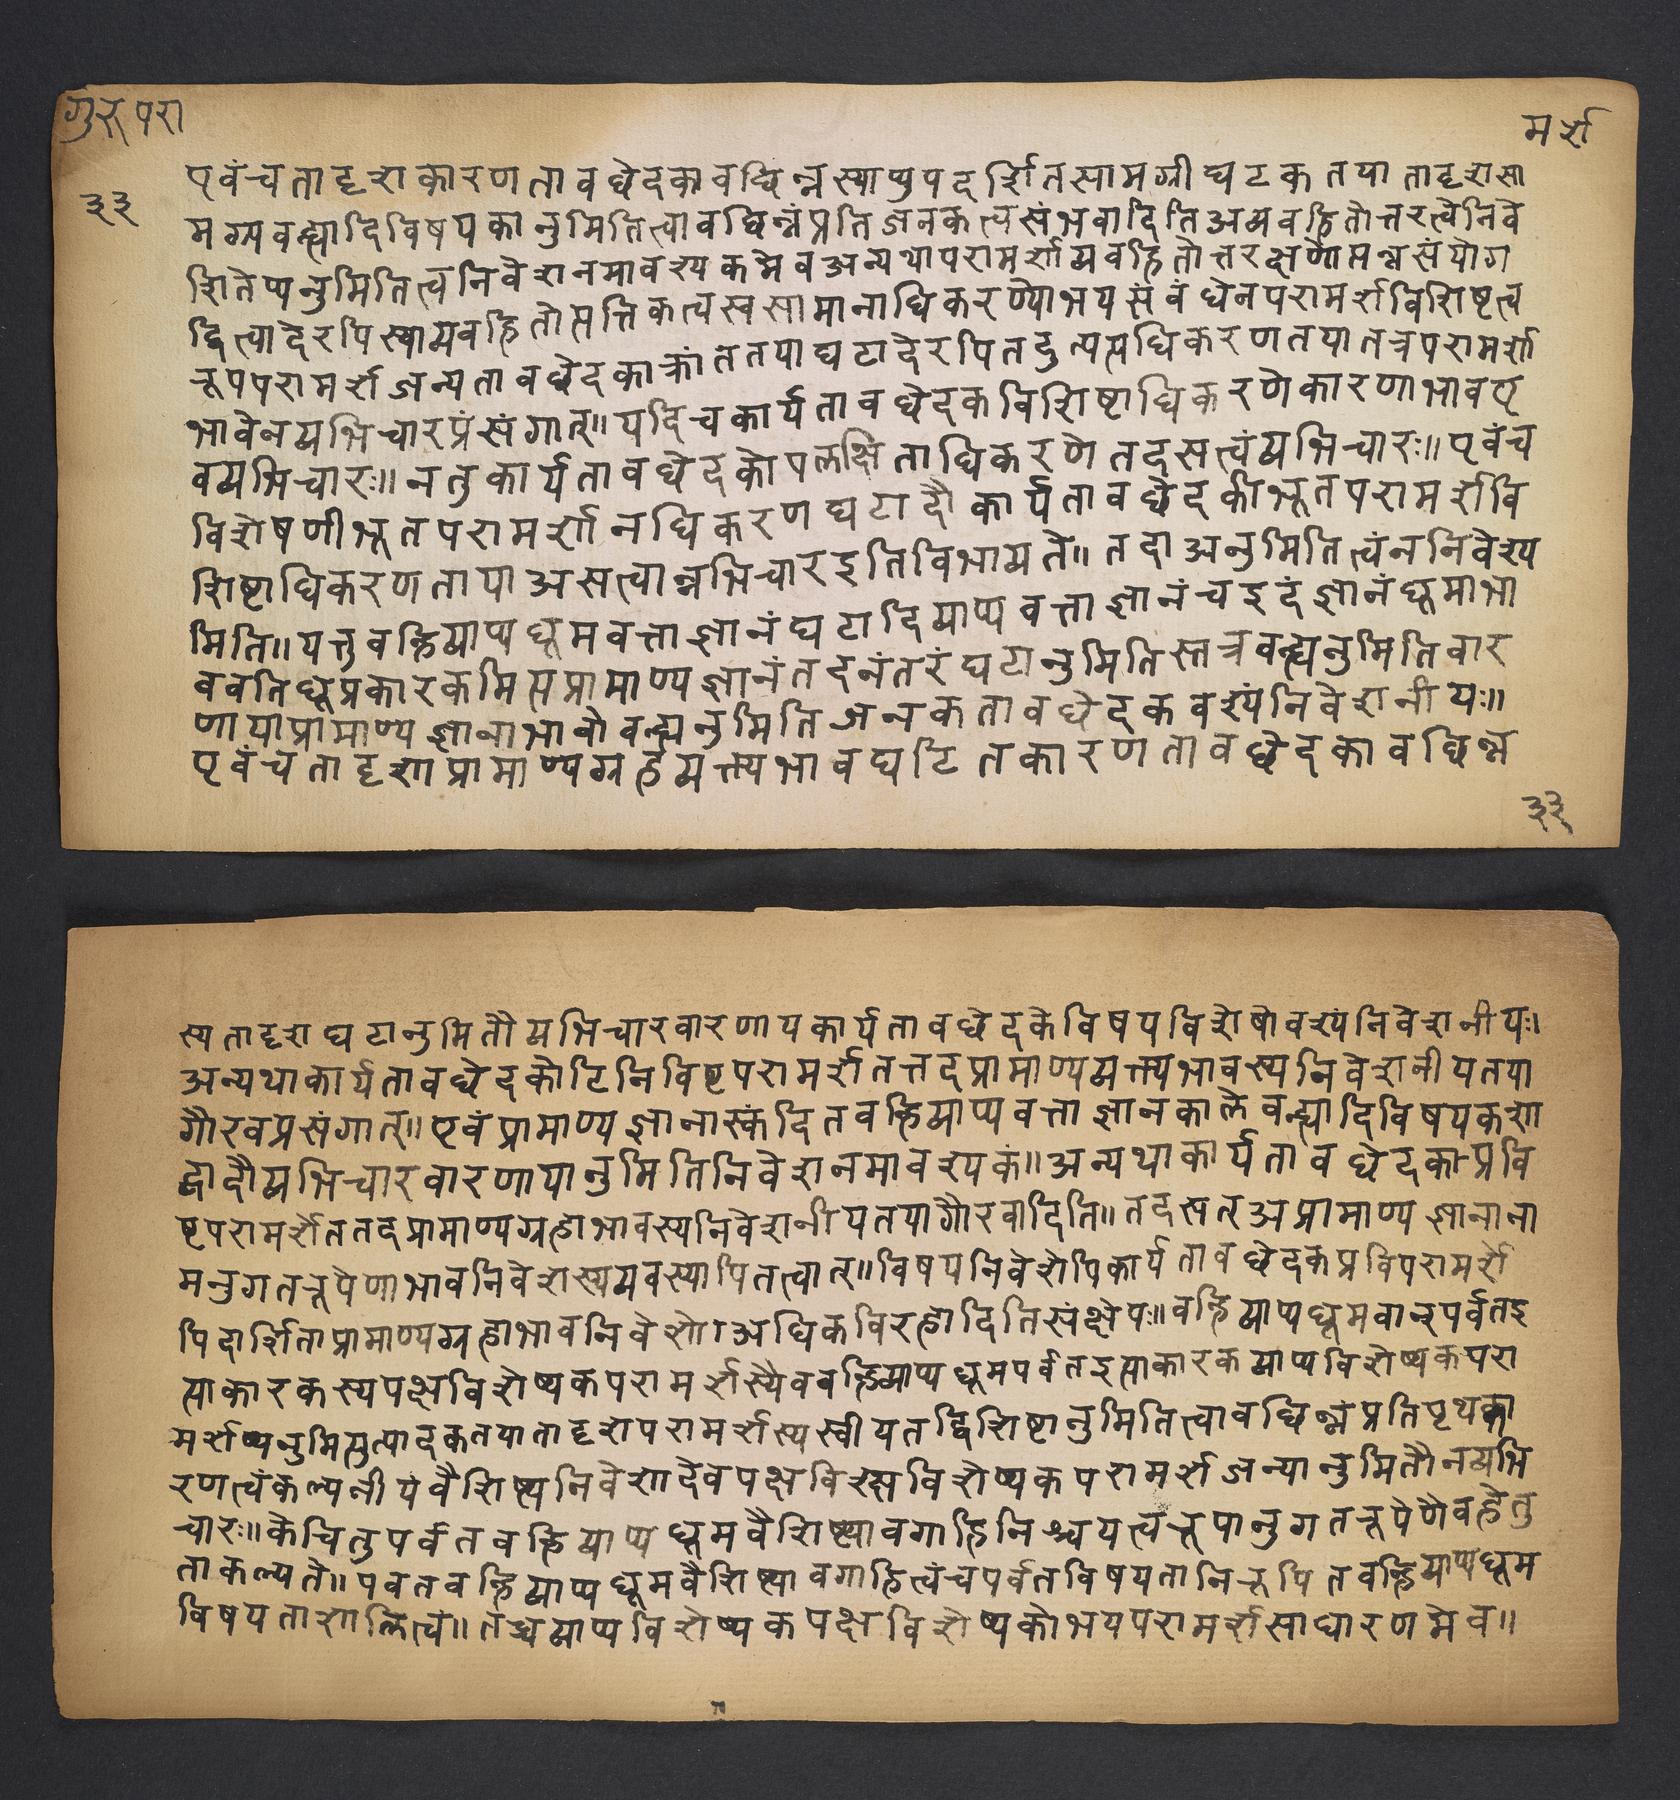 गुरूपरा
मर्श
३३
एवंच तादृशकारणतावछेदकावछिन्नस्याप्युपदर्शितसामग्रीघटकतया तादृशसा
मग्र्यवन्ह्यादिविषयकानुमितित्वावछिन्नंप्रति जनकत्वसंभवादिति अव्यवहितोत्तरत्वेनिवे
शितेप्यनुमितित्वनिवेशनमावश्यकमेव अन्यथापरामर्शाव्यवहितोत्तरक्षणोत्पन्नसंयोग
द्वित्यादेरपिस्वाव्यवहितोत्पत्तिकत्वस्वसामानाधिकरण्योभयसंबंधेनपरामर्शविशिष्टत्व
रूपपरामर्शजन्यतावछेदकाक्रांततयाघटादेरपितदुत्पत्त्यधिकरणतयातत्रपरामर्शा
भावेनव्यभिचारप्रंसंगात्॥ यदिचकार्यतावछेदकविशिष्टाधिकरणेकारणाभावए
वव्यभिचारः॥ नतुकार्यतावछेदकोपलक्षिताधिकरणे तदसत्त्वंव्यभिचारः॥ एवंच
विशेषणीभूतपरामर्शानधिकरणघटादौ कार्यतावछेदकीभूतपरामर्शवि
शिष्टाधिकरणताया असत्वान्नभिचारइतिविभाव्यते॥ तदा अनुमितित्वंननिवेश्य
मिति॥ यत्तुवन्हिव्याप्यधूमवत्ताज्ञानं घटादिव्याप्यवत्ताज्ञानंचइदंज्ञानंधूमाभा
ववतिधूप्रकारकमित्यप्रामाण्यज्ञानंतदनंतरंघटानुमितिस्तत्रवन्ह्यनुमितिवार
णायाप्रामाण्यज्ञानाभावो वन्ह्यनुमितिजनकतावछेदकवश्यंनिवेशनीयः॥
एवंचतादृशाप्रामाण्यग्रहव्यक्त्यभावघटितकारणतावछेदकावछिन्न
३३
स्यतादृशघटानुमितौव्यभिचारवारणायकार्यतावछेदकेविषयविशेषोवश्यंनिवेशनीयः।
अन्यथाकार्यतावछेदकोटिनिविष्टपरामर्शेतत्तदप्रामाण्यव्यक्त्यभावस्यनिवेशनीयतया
गौरवप्रसंगात्॥ एवंप्रामाण्यज्ञानास्कंदितवन्हिव्याप्यवत्ताज्ञानकालेवन्ह्यादिविषयकशा
द्बादौव्यभिचारवारणायानुमितिनिवेशनमावश्यकं॥ अन्यथाकार्यतावछेदकाप्रवि
ष्टपरामर्शेततदप्रामाण्यग्रहाभावस्यनिवेशनीयतयागौरवादिति॥ तदसत् अप्रामाण्यज्ञानाना
मनुगतरूपेणाभावनिवेशस्यव्यवस्थापितत्वात्॥ विषयनिवेशेपिकार्यतावछेदकप्रविपरामर्शे
पिदार्शिताप्रामाण्यग्रहाभावनिवेशो। अधिकविरहादितिसंक्षेपः॥ वन्हिव्याप्यधूमवान्पर्वतइ
त्याकारकस्यपक्षविशेष्यकपरामर्शस्यैववन्हिव्याप्यधूमपर्वतइत्याकारकव्याप्यविशेष्यकपरा
मर्शेष्यनुमित्युत्पादकतयातादृशपरामर्शस्यस्वीयतद्विशिष्टानुमितित्वावछिन्नंप्रतिपृथक्का
रणत्वंकल्पनीयं वैशिष्ट्यनिवेशादेवपक्षविश्क्षविशेष्यकपरामर्शजन्यानुमितौनव्यभि
चारः॥ केचितुपर्वतवन्हिव्याप्यधूमवैशिष्ट्यावगाहिनिश्चयत्वरूपानुगतरूपेणैवहेतु
ताकल्पते॥ पवतवन्हिव्याप्यधूमवैशिष्ट्यावगाहित्वंचपर्वतविषयतानिरूपितवन्हिव्याप्यधूम
विषयताशालित्वं॥ तच्चव्याप्यविशेष्यकपक्षविशेष्यकोभयपरामर्शसाधारणमेव॥